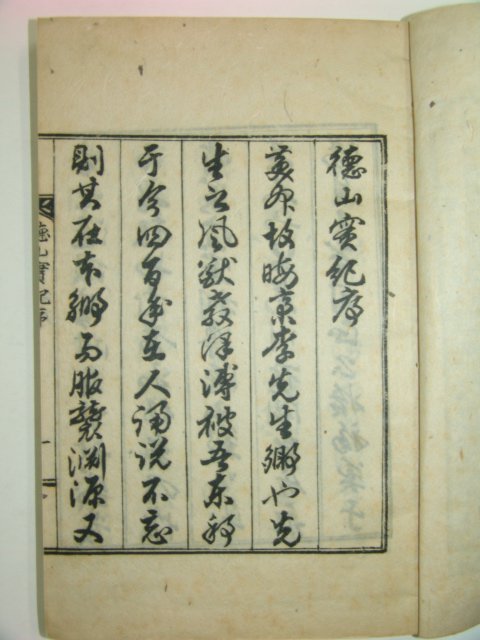 德山實紀序
故晦齋李先生鄕也先
生之風猷敎澤溥被吾東
于今四百年在人誦說不忘
則其在本鄕而服襲淵源又
德山實記序
一